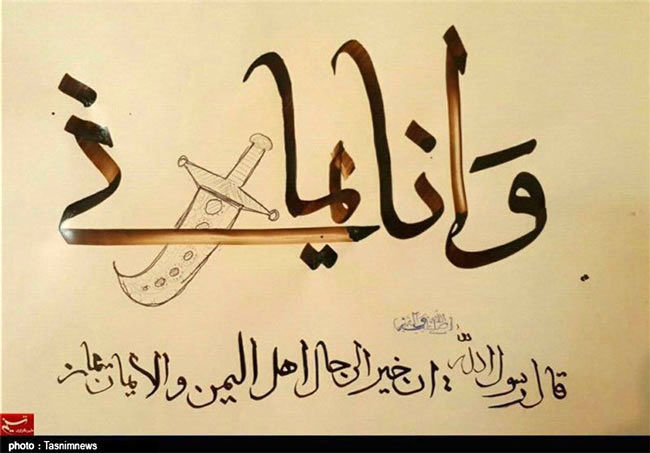 وانا یمانی
قال رسول الله: ان خیر الرجال اهل الیمن والایمان یمان
photo : Tasnimnews